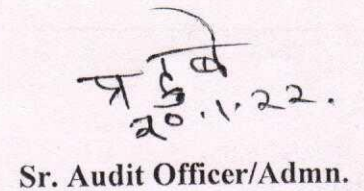 प्र दुबे
20.1.22.
Sr. Audit Officer/Admn.